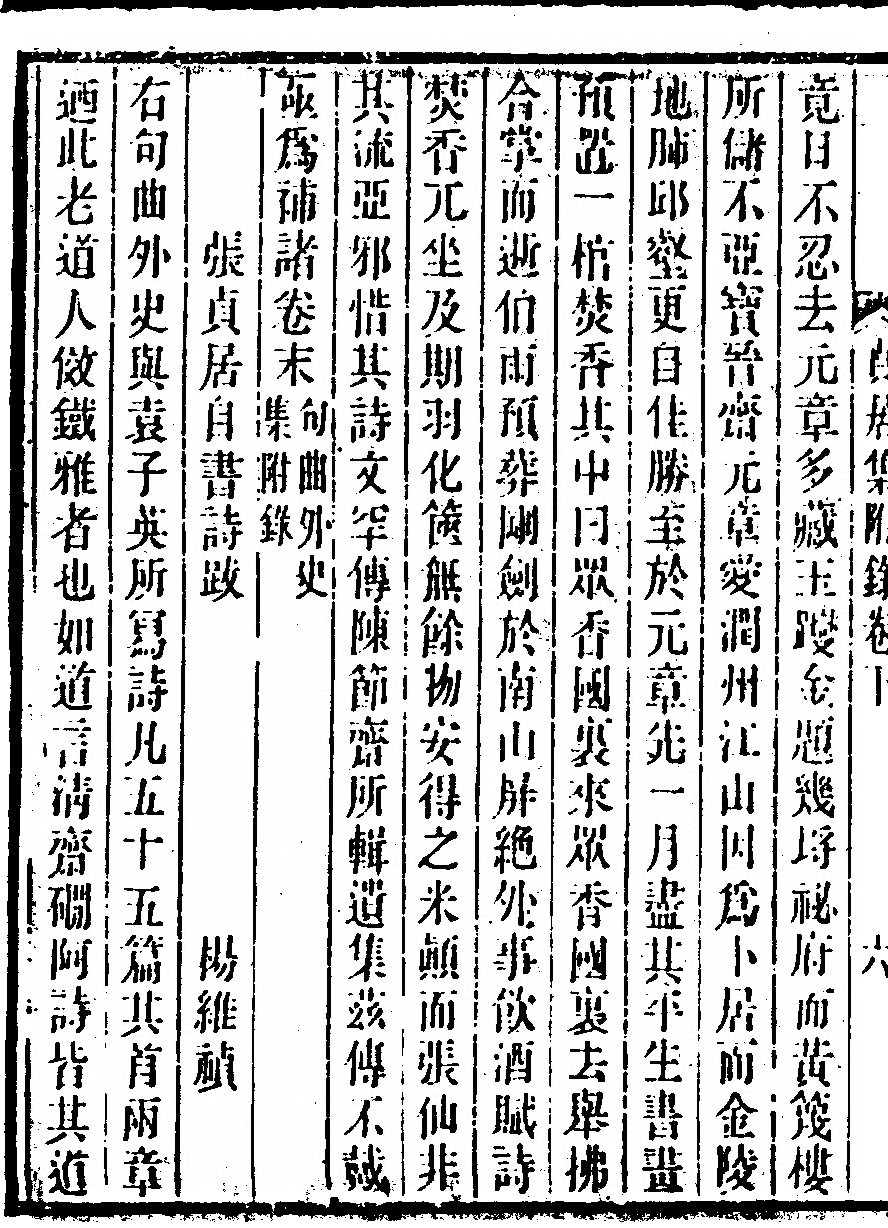 貞居集附錄卷下 六
竟日不忍去元章多藏玉躞金題幾埒祕府而黃篾樓
所儲不亞寶晉齋元章愛潤州江山因爲卜居而金陵
地肺邱壑更自佳勝至於元章先一月盡其平生書畫
預置一棺焚香其中曰眾香國裏來眾香國裏去舉拂
合掌而逝伯雨預葬冠劍於南山屏絶外事飲酒賦詩
焚香兀坐及期羽化篋無餘物安得之米顛而張仙非
其流亞邪惜其詩文罕傳陳節齋所輯遺集茲傳不載
亟爲補諸卷末句曲外史
集附錄
張貞居自書詩跋 楊維禎
右句曲外史與袁子英所寫詩凡五十五篇其首兩章
迺此老道人傚鐵雅者也如道言清齋磵阿詩皆其道